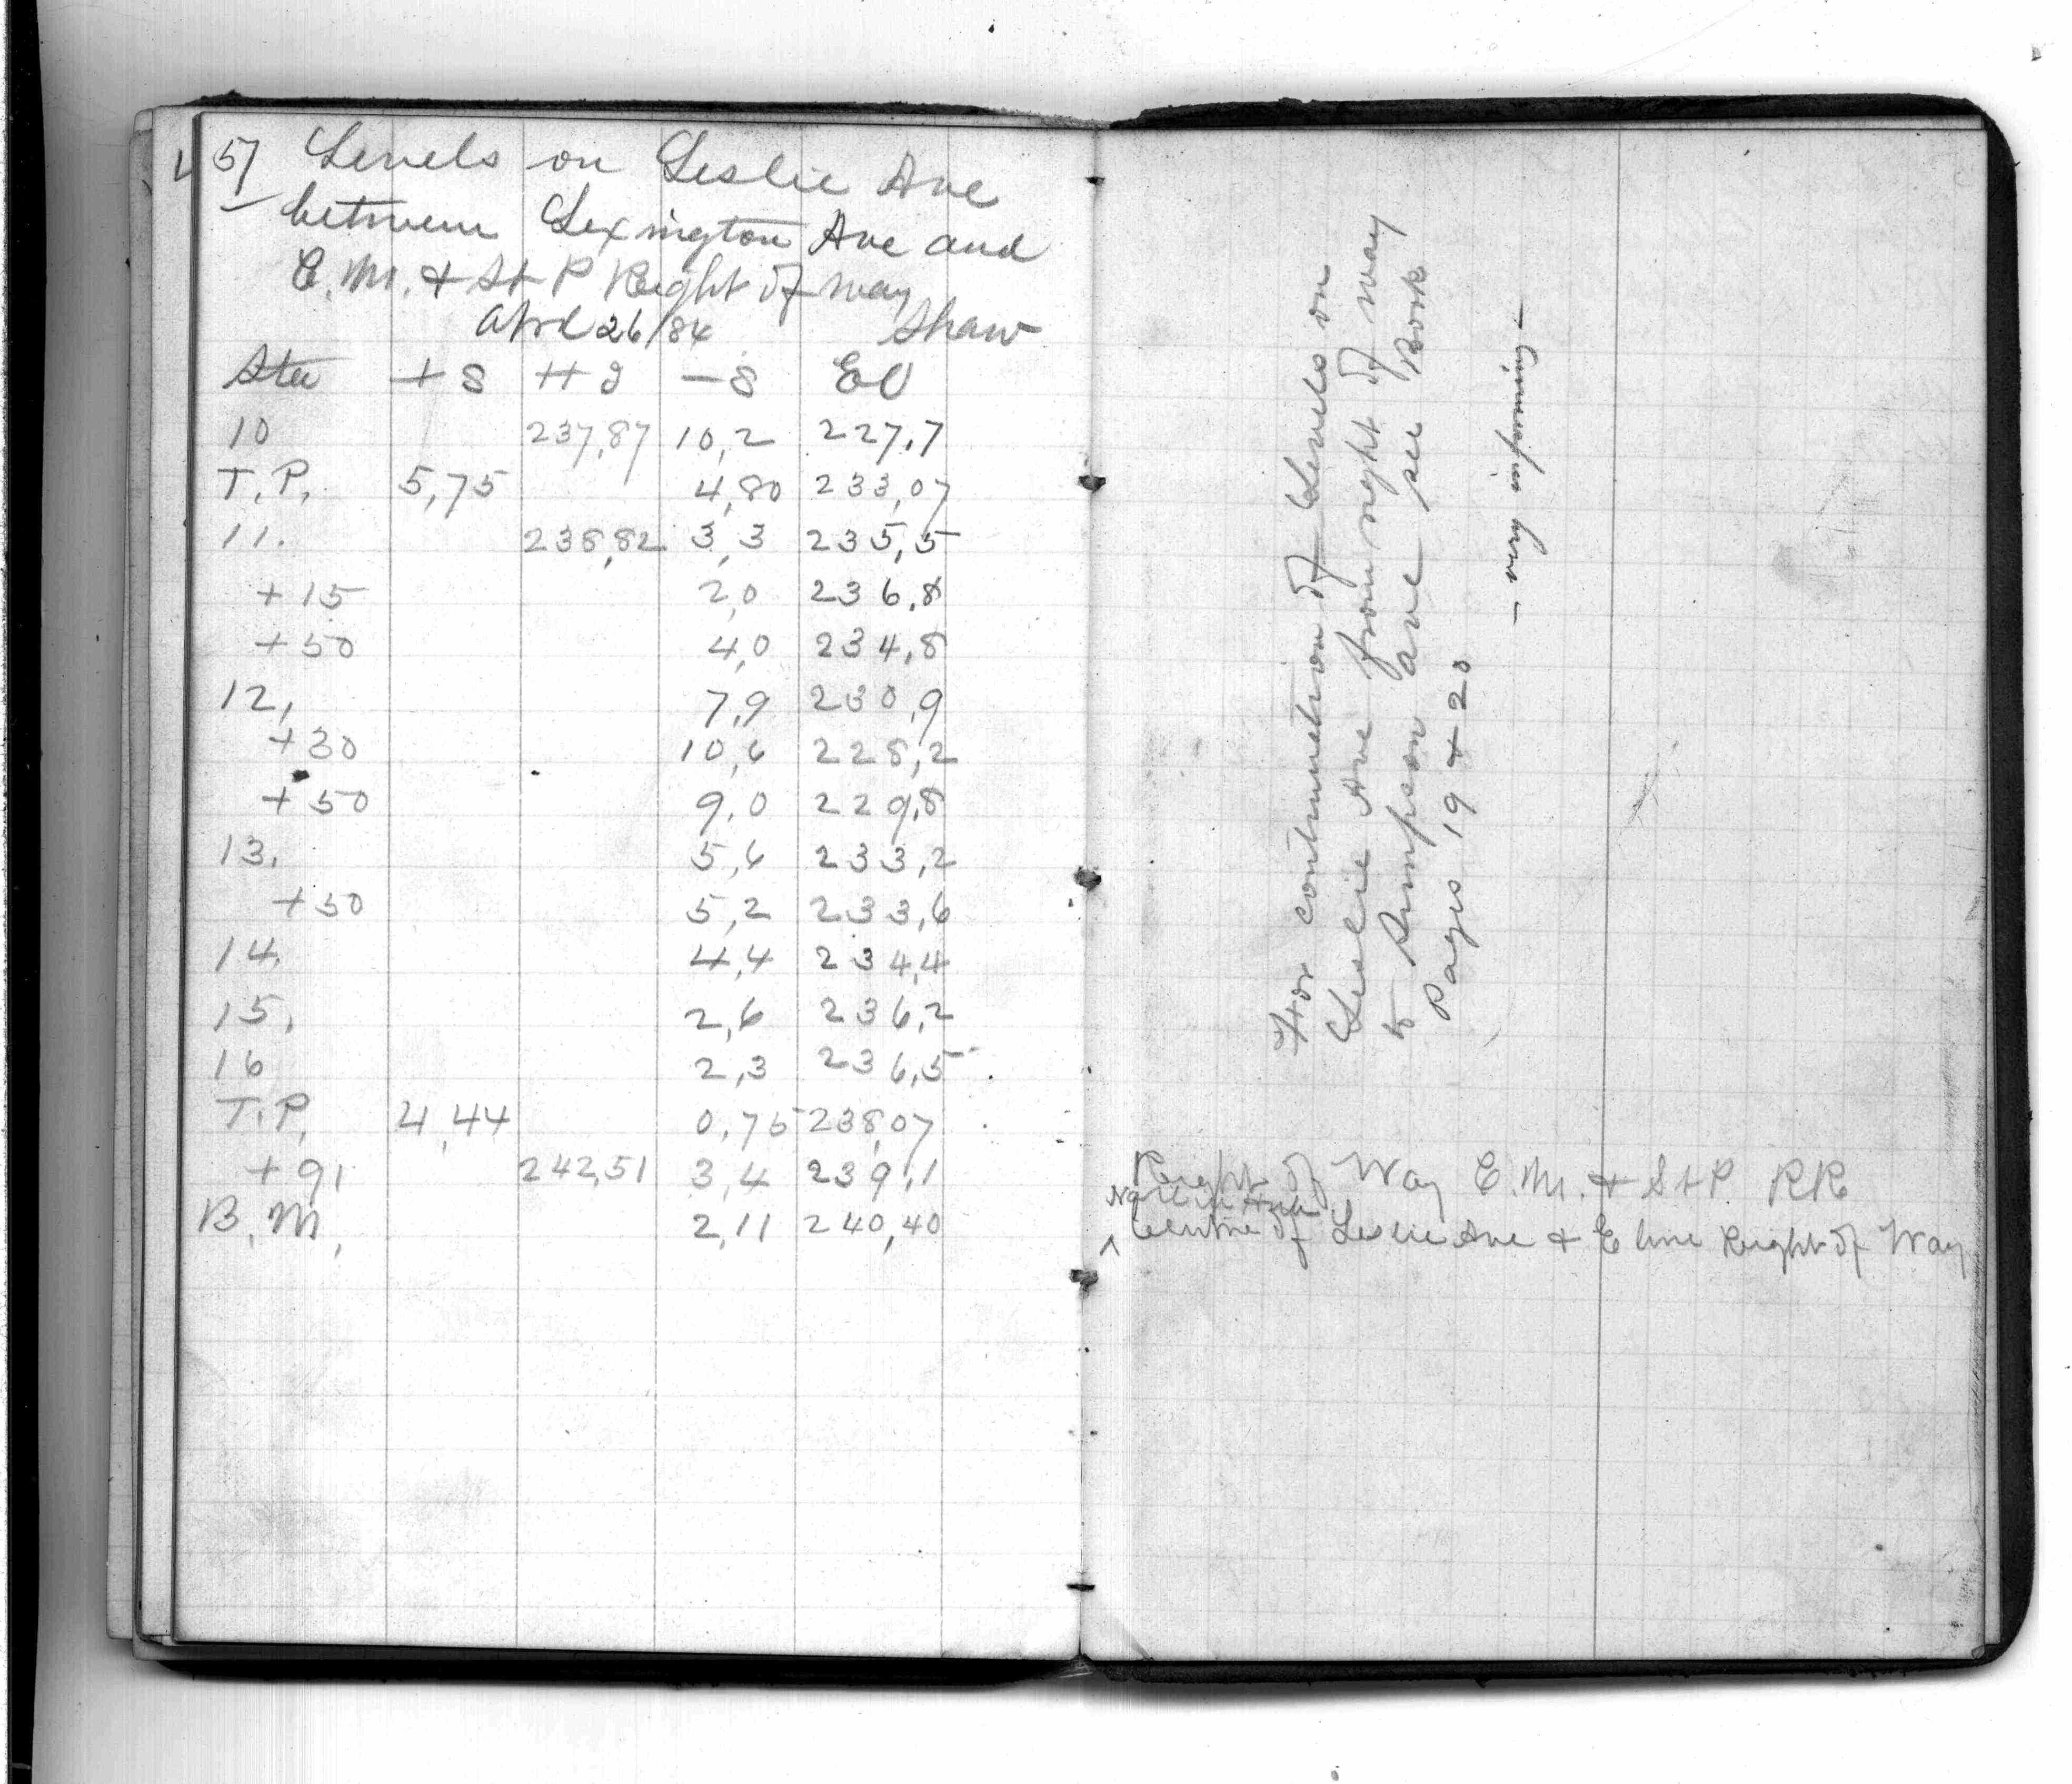 57 Levels on Leslie Ave
between Lexington Ave and
C. M. & St P Right of Way
April 26/84 Shaw
Sta +S HI -S El
10 237,87 10,2 227,7
T.P. 5,75 4,80 233,07
11. 238,82 3,3 235,5
+15 2,0 236,8
+50 4,0 234,8
12, 7,9 230,9
+30 10,6 228,2
+50 9,0 229,8
13. 5,6 233,2
+50 5,2 233,6
14. 4,4 234,4
15, 2,6 236,2
16 2,3 236,5
T.P. 4,44 0,75 238,07
+91 242,51 3,4 239,1
B.M. 2,11 240,40
For continuation of Levels on
Leslie Ave from right of way
to Simpson ave see Book
Pages 19 + 20
- very informing -
Right of Way C. M. & St P. RR
Centre of Leslie Ave & E line Right of Way